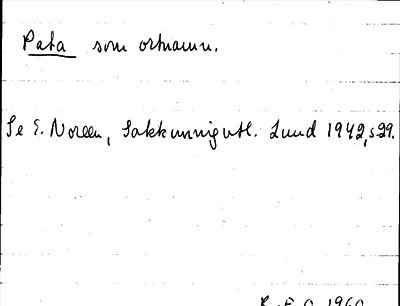 Pata som ortnamn.
Se E. Noreen, Sakkunnigutl. Lund 1942, s 29.
R. E. O. 1960